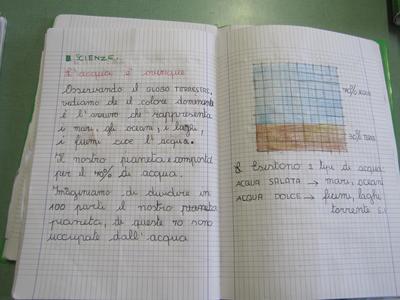 SCIENZE
L'acqua è ovunque
Osservando il GLOBO TERRESTRE,
vediamo che il colore dominante
è l'azzurro che rappresenta
i mari, gli oceani, i laghi,
i fiumi cioè l'acqua.
Il nostro pianeta è composto
per il 70% di acqua.
Imaginiamo di dividere in
100 parti il nostro pianeta
pianeta, di queste 70 sono
occupate dall'acqua
70% acqua
30% terra
Esistono 2 tipi di acqua
ACQUA SALATA → mari, oceani
ACQUA DOLCE → fiumi, laghi
torrente